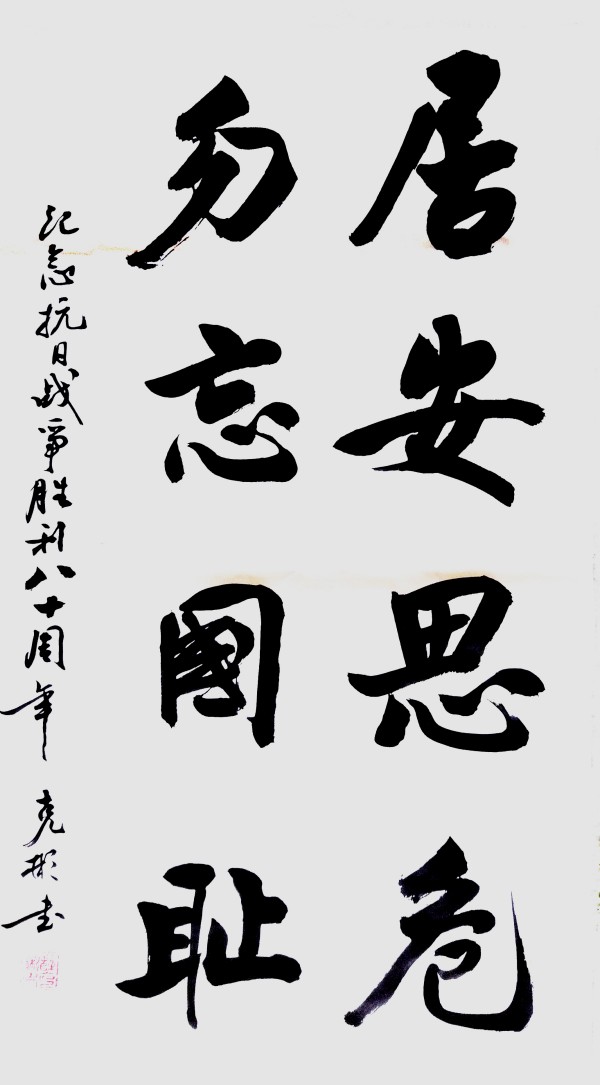 居安思危
勿忘國耻
纪念抗日战争胜利八十周年
克彬书